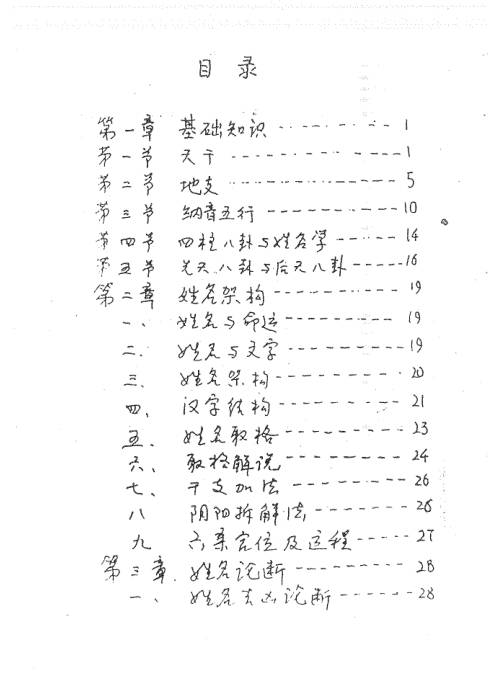 目录
第一章 基础知识 ---------- 1
第一节 天干 ------------- 1
第二节 地支 ------------- 5
第三节 纳音五行 --------- 10
第四节 四柱八卦与姓名学 ---- 14
第五节 先天八卦与后天八卦 ---- 16
第二章 姓名架构 ---------- 19
一、 姓名与命运 --------- 19
二. 姓名与文字 --------- 19
三、 姓名架构 --------- 20
四、 汉字结构 --------- 21
五、 姓名取格 --------- 23
六、 取格解说 --------- 24
七、 干支加法 --------- 26
八 阴阳拆解法 -------- 26
九 六亲宫位及运程 ----- 27
第三章、姓名论断 --------- 28
一、 姓名吉凶论断 ------ 28